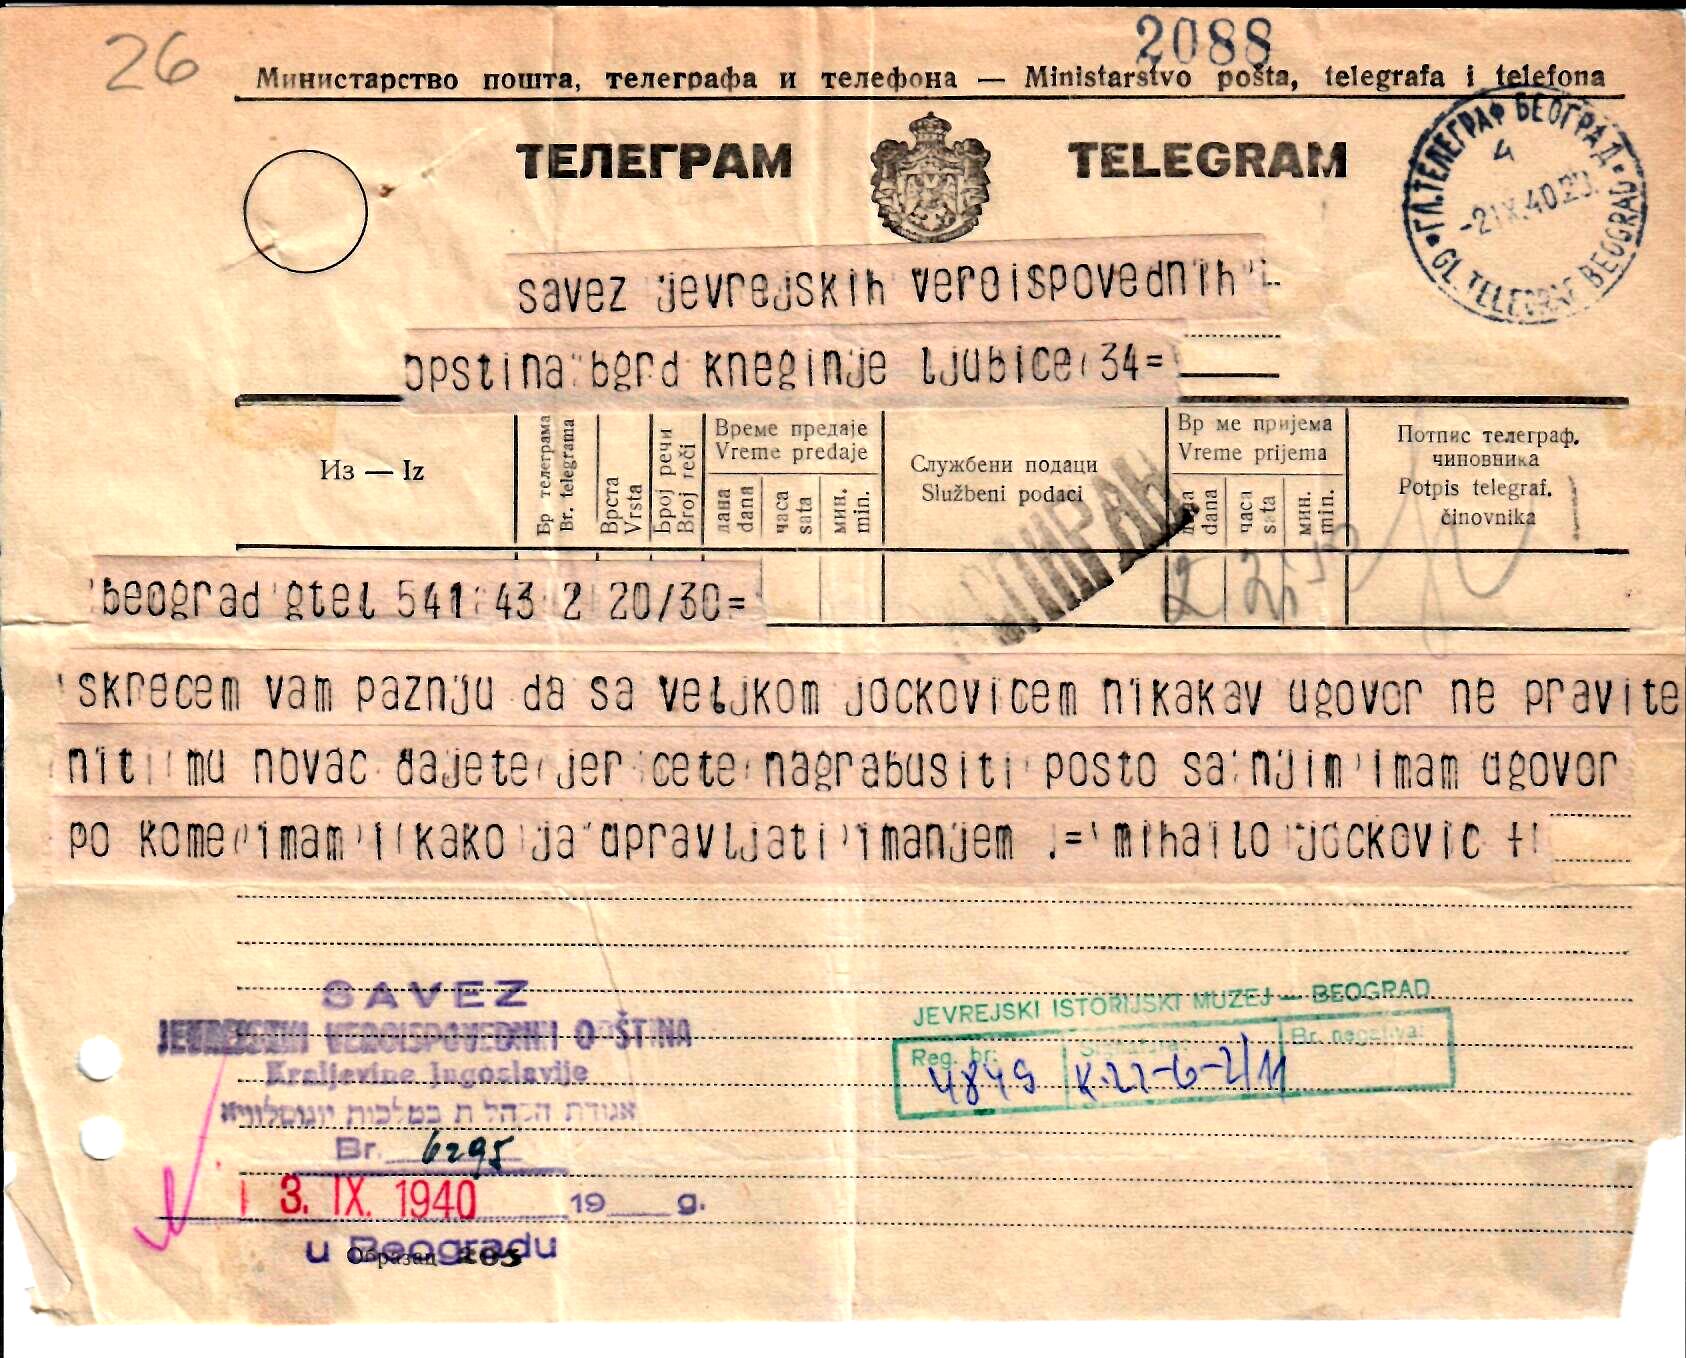 26
2088
Министарство пошта, телеграфа и телефона — Ministarstvo pošta, telegrafa i telefona
ТЕЛЕГРАМ TELEGRAM
ГЛ. ТЕЛЕГРАФ БЕОГРАД
4
-2 IX. 40 20.
GL. TELEGRAF BEOGRAD
savez jevrejskih veroispovednih
opstina bgrd kneginje ljubice 34=
Из — Iz
Бр телеграма
Br. telegrama
Врста
Vrsta
Број речи
Broj reči
Време предаје
Vreme predaje
дана
dana
часа
sata
мин.
min.
Службени подаци
Službeni podaci
Вр ме пријема
Vreme prijema
dana
часа
sata
мин.
min.
Потпис телеграф.
чиновника
Potpis telegraf.
činovnika
beograd gtel 541 43 2 20/30=
skrecem vam paznju da sa veljkom jockovicem nikakav ugovor ne pravite
niti mu novac dajete jer cete nagrabusiti posto sa njim imam ugovor
po kome imam i kako ja upravljati imanjem .= mihailo jockovic +
SAVEZ
JEVREJSKIH VEROISPOVEDNIH OPŠTINA
Kraljevine Jugoslavije
אגודת הקהל ת במלכות יוגוסלוויא
Br. 6295
3. IX. 1940 19 g.
u Beogradu
Образац 205
JEVREJSKI ISTORIJSKI MUZEJ — BEOGRAD
Reg. br. Signatura: Br. negativa:
4849 K.22-6-2/11